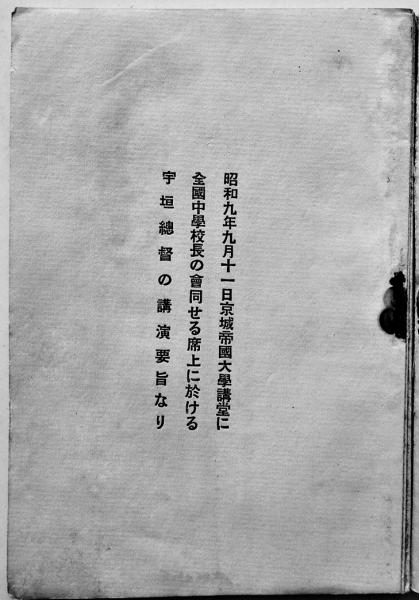 昭和九年九月十一日京城帝國大學講堂に
全國中學校長の會同せる席上に於ける
宇垣總督の講演要旨なり